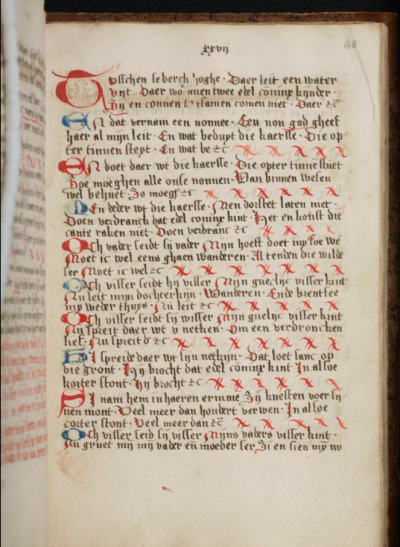 xxvij
40
Tusschen se berch hoghe · Daer leit een water
Daer wo inen twee edel coninx kynder
Zij en connen tsamen comen niet · Daer ec
En dat vernam een nonne · Een non god gheef
haer al mijn leit · En wat bedupt die kaersse · Die op
ter tinnen stept · En wat be ec
En doet daer wt die kaersse · Die opter tinne stuet
hoe moeghen alle onse nonnen · Wan binnen wesen
wel behuet · Zo moegh ec
Den deder wt die kaersse · Men dorstet laten met
Doen verdranck dat edel coninx kint · Het en konst die
cante raken met · Doen verdranc ec
Och vader seidt sij vader Mijn hoeft doet mij soe we
Moet ic wel eens ghaen wanderen · Al tenden die wilde
see Moet ic wel ec
Och visser seidt hij visser Mijn
Nu leit mijn dochterkijn · Wanderen · Ende
my weder thuys · Nu leit ec
Och visser seidt sij visser Mijn visser kint
Nu spreit daer wt v netken · Om een verdroncken
lief · Nu spreit d ec
Hi spreide daer wt sijn netkijn · Dat loet sanc op
die gront · Hij brocht dat edel coninx kint In also
korter stont · Hij brocht ec
Si nam hem in haeren erinne Zij kussten voer sij
nen mont · Veel meer dan hondert verwen · In alsoe
corter stont · Veel meer dan ec
Och visser seid sij visser Mijns vaders visser kint ·
Nu gruet mij mij vader en moeder ser Zi en sien mij no